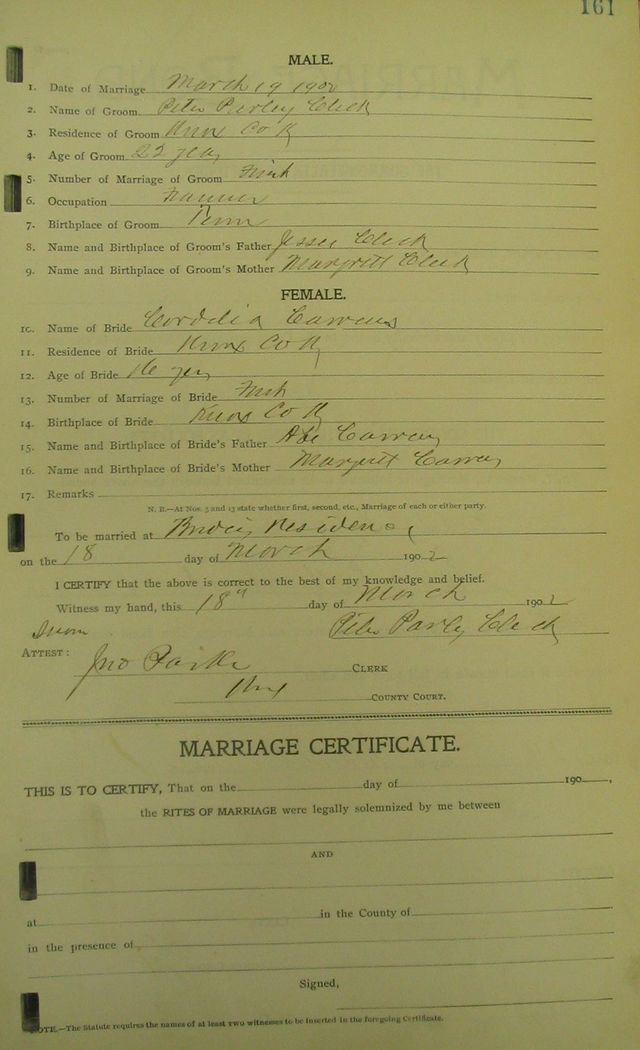 161
MALE.
1. Date of Marriage March 19 1902
2. Name of Groom Peter Parley Cleek
3. Residence of Groom Knox Co Ky
4. Age of Groom 22 year
5. Number of Marriage of Groom First
6. Occupation Farmer
7. Birthplace of Groom Tenn
8. Name and Birthplace of Groom's Father Jesse Cleek
9. Name and Birthplace of Groom's Mother Margrett Cleek
FEMALE.
10. Name of Bride Cordelia
11. Residence of Bride Knox Co Ky
12. Age of Bride 16 year
13. Number of Marriage of Bride First
14. Birthplace of Bride Knox Co Ky
15. Name and Birthplace of Bride's Father Abe
16. Name and Birthplace of Bride's Mother Margrett
17. Remarks
N. B.—At Nos. 5 and 13 state whether first, second, etc., Marriage of each or either party.
To be married at Brides Residence
on the 18 day of March 1902
I CERTIFY that the above is correct to the best of my knowledge and belief.
Witness my hand, this 18" day of March 1902
Peter Parley Cleek
ATTEST:
Jno Parker CLERK
Knox COUNTY COURT.
MARRIAGE CERTIFICATE.
THIS IS TO CERTIFY, That on the day of 190 ,
the RITES OF MARRIAGE were legally solemnized by me between
AND
at in the County of
in the presence of
Signed,
NOTE.—The Statute requires the names of at least two witnesses to be inserted in the foregoing Certificate.